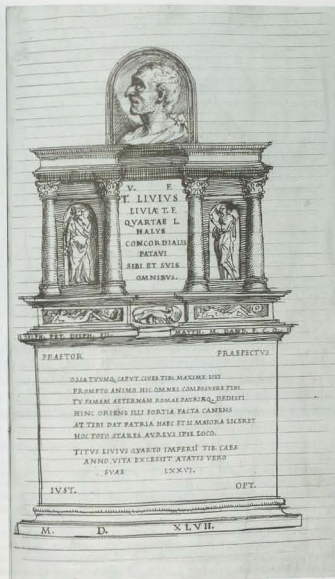 V. F.
T. LIVIVS
LIVIÆ T. F.
QVARTAE L.
HALYS
CONCORDIALIS
PATAVI
SIBI ET SVIS
OMNIBVS.
DELPH. FIL. MATTH. M. BAND. F. C. Q.
PRAETOR PRAEFECTVS
OSSA TVVMQ. CAPVT CIVES TIBI MAXIME LIVI
PROMPTO ANIMO HIC OMNES COMPOSVERE TIBI
TV FAMAM AETERNAM ROMAE PATRIÆQ. DEDISTI
HINC ORIENS ILLI FORTIA FACTA CANENS
AT TIBI DAT PATRIA HAEC ET SI MAIORA LICERET
HOC TOTO STARES AVREVS IPSE LOCO.
TITVS LIVIVS QVARTO IMPERII TIB. CAES
ANNO, VITA EXCESSIT ATATIS VERO
SVAE LXXVI.
IVST. OPT.
M. D. XLVII.